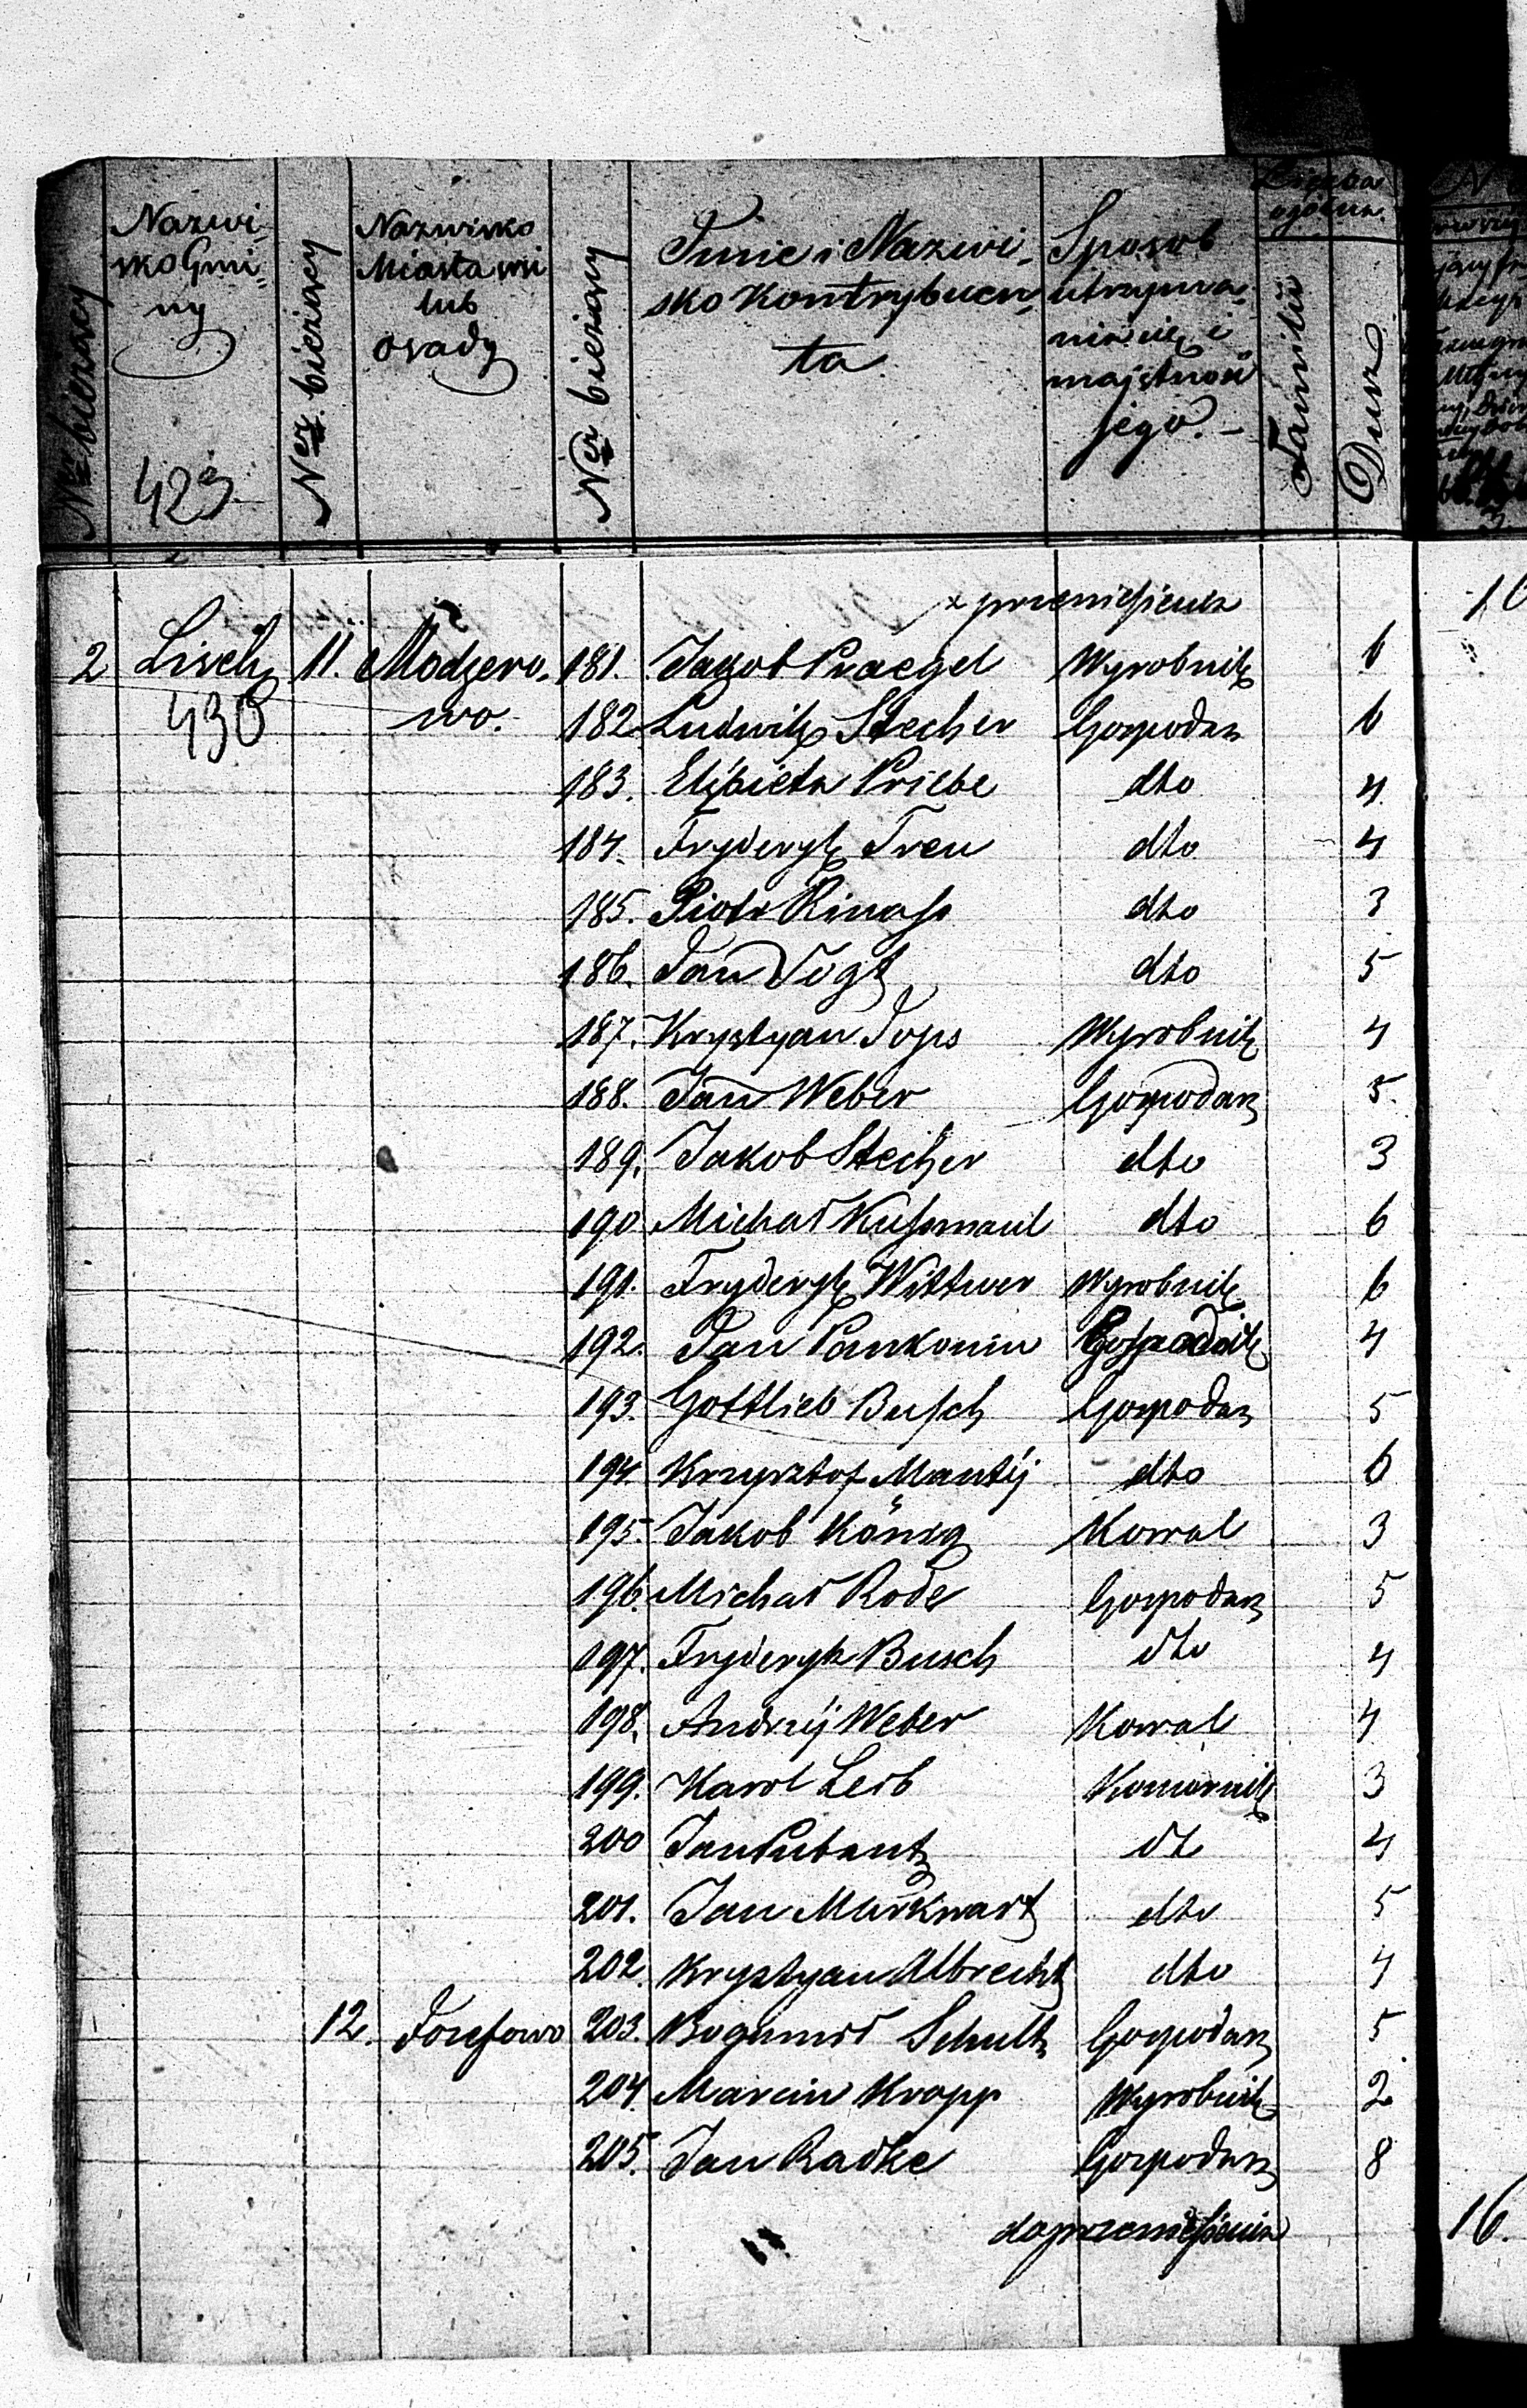 Ner bieżący
Nazwi-
sko Gmi-
ny
423
Ner bieżący
Nazwisko
Miasta wsi
lub
osady
Ner bieżący
Imie i Nazwi-
sko Kontrybuen-
ta
Sposob
utrzyma-
nia się i
majętność
jego.-
Liczba
ogólna
Familii
Dusz
z przeniesienia
2 Lisek 11. Modzero- 181. Jakob Praegel Wyrobnik 6
430 wo. 182 Ludwik Stecher Gospodarz 6
183. Elżbieta Priebe dto 4
184. Fryderyk Treu dto 4
185. Piotr Rinass dto 3
186. Jan Vogt dto 5
187. Krystyan Tops Wyrobnik 4
188. Jan Weber Gospodarz 5
189. Jakob Stecher dto 3
190 Michał Kussmaul dto 6
191. Fryderyk Wittwer Wyrobnik 6
192. Jan Pankonin 4
193. Gottlieb Busch Gospodarz 5
194. Krzysztof Mantÿ dto 6
195. Jakob König Kowal 3
196. Michał Rode Gospodarz 5
197. Fryderyk Busch dto 4
198. Andrzÿ Weber Kowal 4
199. Karol Leib Komornik 3
200 Jan Pubantz dto 4
201. Jan Markwart dto 5
202. Krystyan Albrecht dto 4
12. Jozefowo 203. Bogumił Schultz Gospodarz 5
204. Marcin Kropp Wyrobnik 2
205. Jan Radke Gospodarz 8
do przeniesienia 16.